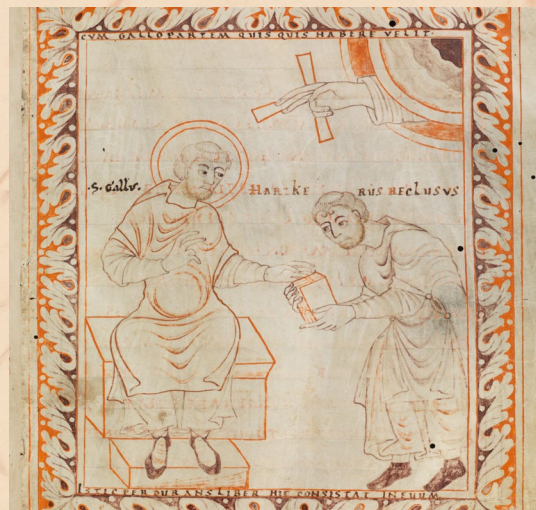 CVM GALLO PARTEM QUIS QUIS HABERE VELIT.
·S· Gallus. HARTKE RUS RECLUSUS
ISTIC PERDURANS LIBER HIC CONSISTAT IN EVUM